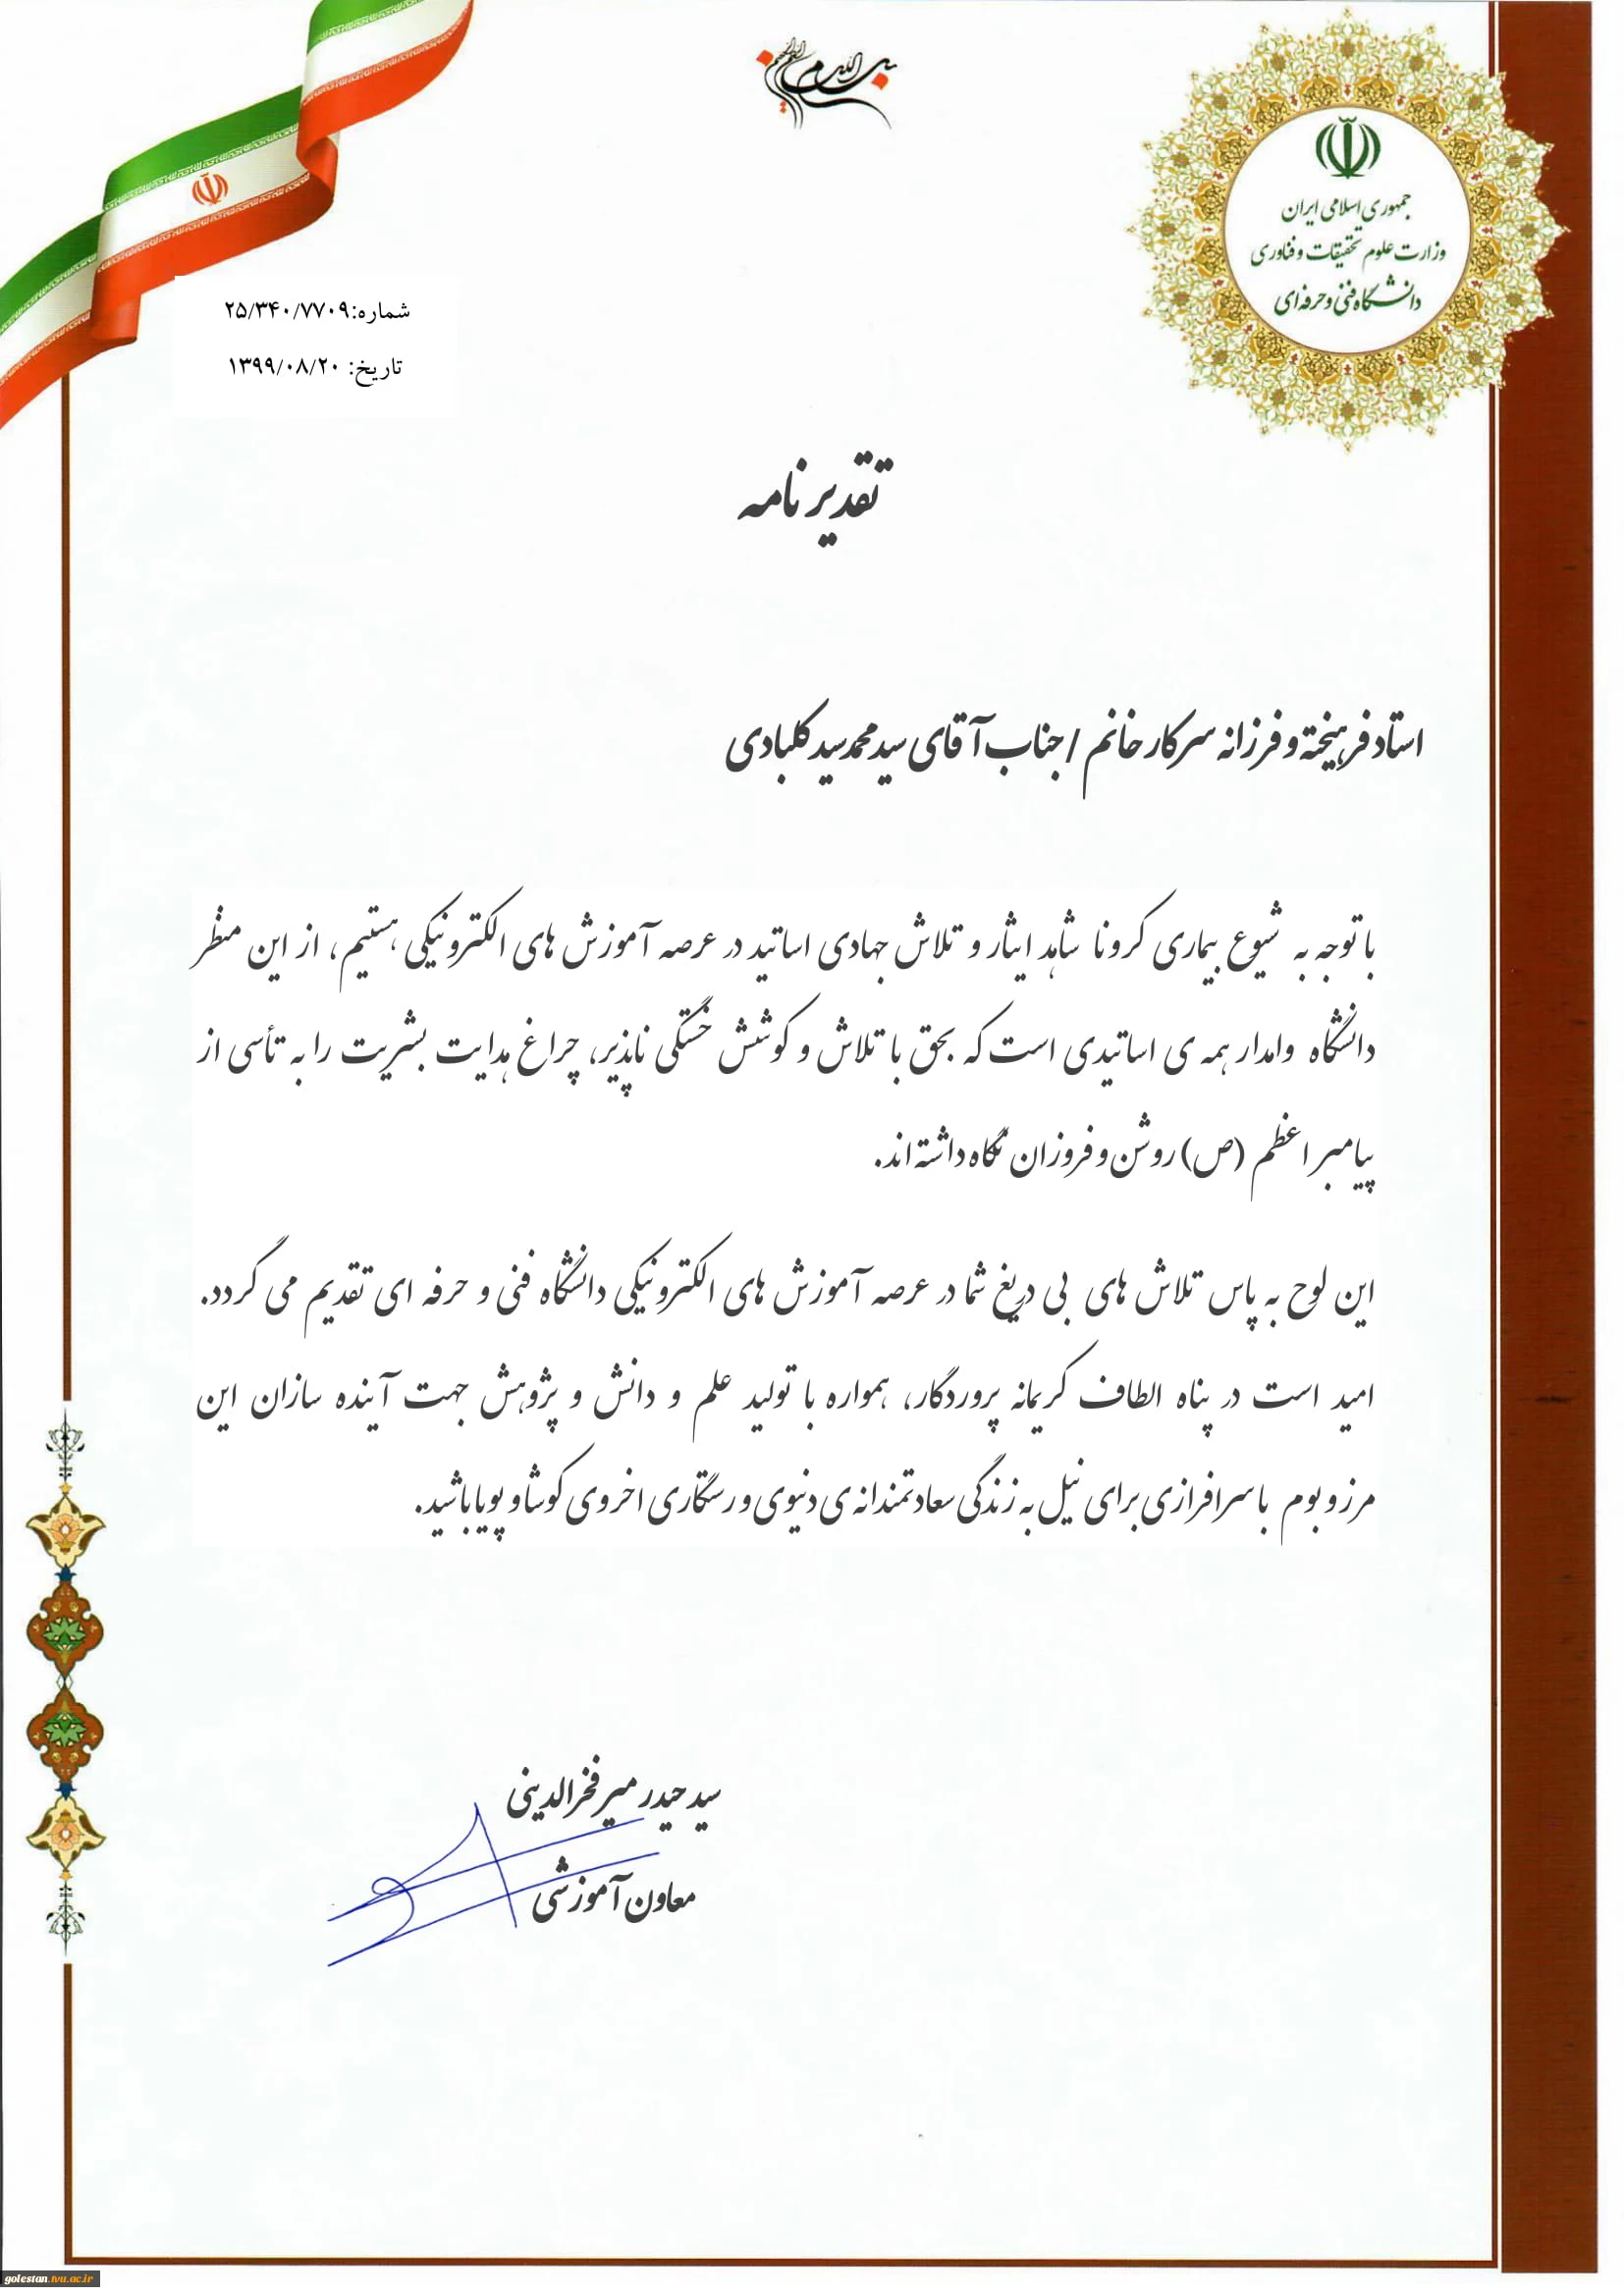 بسم الله الرحمن الرحیم
جمهوری اسلامی ایران
وزارت علوم تحقیقات و فناوری
دانشگاه فنی و حرفه‌ای
شماره:۲۵/۳۴۰/۷۷۰۹
تاریخ: ۱۳۹۹/۰۸/۲۰
تقدیر نامه
استاد فرهیخته و فرزانه سرکار خانم / جناب آقای سید محمد سید کلبادی
با توجه به شیوع بیماری کرونا شاهد ایثار و تلاش جهادی اساتید در عرصه آموزش های الکترونیکی هستیم، از این منظر
دانشگاه وامدار همه ی اساتیدی است که بحق با تلاش و کوشش خستگی ناپذیر، چراغ هدایت بشریت را به تأسی از
پیامبر اعظم (ص) روشن و فروزان نگاه داشته اند.
این لوح به پاس تلاش های بی دریغ شما در عرصه آموزش های الکترونیکی دانشگاه فنی و حرفه ای تقدیم می گردد.
امید است در پناه الطاف کریمانه پروردگار، همواره با تولید علم و دانش و پژوهش جهت آینده سازان این
مرز و بوم با سرافرازی برای نیل به زندگی سعادتمندانه ی دنیوی و رستگاری اخروی کوشا و پویا باشید.
سید حیدر میرفخرالدینی
معاون آموزشی
golestan.tvu.ac.ir